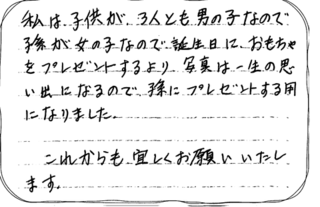 私は、子供が、3人とも男の子なので
孫が女の子なので誕生日に、おもちゃ
をプレゼントするより、写真は一生の思
い出になるので、孫にプレゼントする用
になりました。
これからも、宜しくお願いいたし
ます。